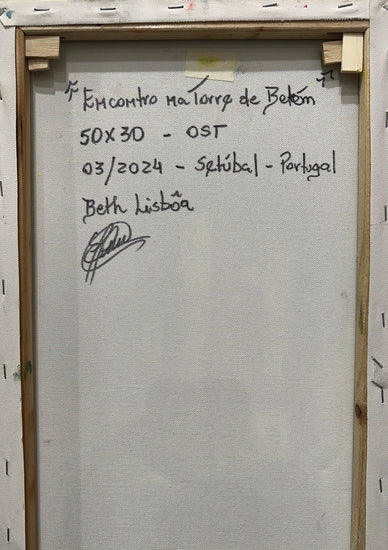 "Encontro na Torre de Belém"
50X30 - OST
03/2024 - Setúbal - Portugal
Beth Lisbôa